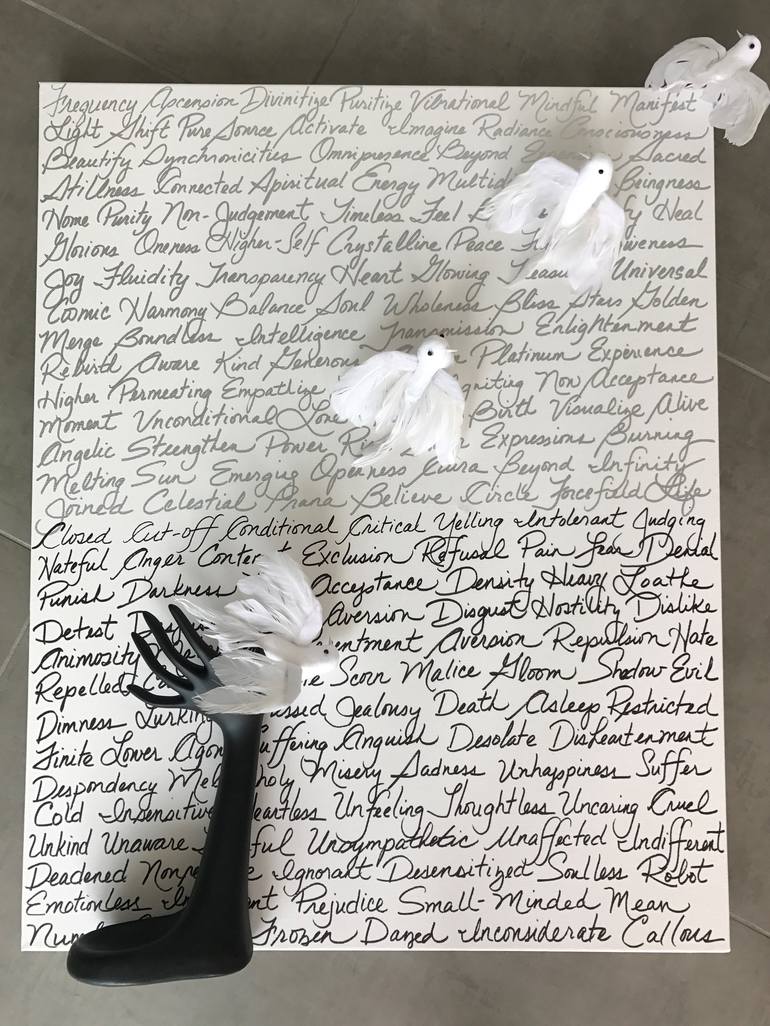 Frequency Ascension Divinitize Puritize Vibrational Mindful Manifest
Light Shift Pure Source Activate Imagine Radiance Consciousness
Beautify Synchronicities Omnipresence Beyond Sacred
Stillness Connected Apiritual Energy Multid Beingness
Home Purity Non-Judgement Timeless Feel Heal
Glorious Oneness Higher-Self Crystalline Peace iveness
Joy Fluidity Transparency Heart Glowing Universal
Cosmic Harmony Balance Soul Wholeness Bliss Stars Golden
Merge Boundless Intelligence Transmission Enlightenment
Rebirth Aware Kind Generous Platinum Experience
Higher Permeating Empathize gniting Now Acceptance
Moment Unconditional Love Birth Visualize Alive
Angelic Strengthen Power Expressions Burning
Melting Sun Emerging Openness Aura Beyond Infinity
Joined Celestial Prana Believe Circle Forcefield Life
Closed Cut-off Conditional Critical Yelling Intolerant Judging
Hateful Anger Conte Exclusion Refusal Pain Fear Denial
Punish Darkness Acceptance Density Heavy Loathe
Detest Aversion Disgust Hostility Dislike
Animosity entment Aversion Repulsion Hate
Repelled Scorn Malice Gloom Shadow Evil
Dimness Lurking ussed Jealousy Death Asleep Restricted
Finite Lower Agon uffering Anguish Desolate Disheartenment
Despondency Mel holy Misery Sadness Unhappiness Suffer
Cold Insensitive eartless Unfeeling Thoughtless Uncaring Cruel
Unkind Unaware ful Unsympathetic Unaffected Indifferent
Deadened Nonre Ignorant Desensitized Soulless Robot
Emotionless In nt Prejudice Small-Minded Mean
Num Frozen Dazed Inconsiderate Callous